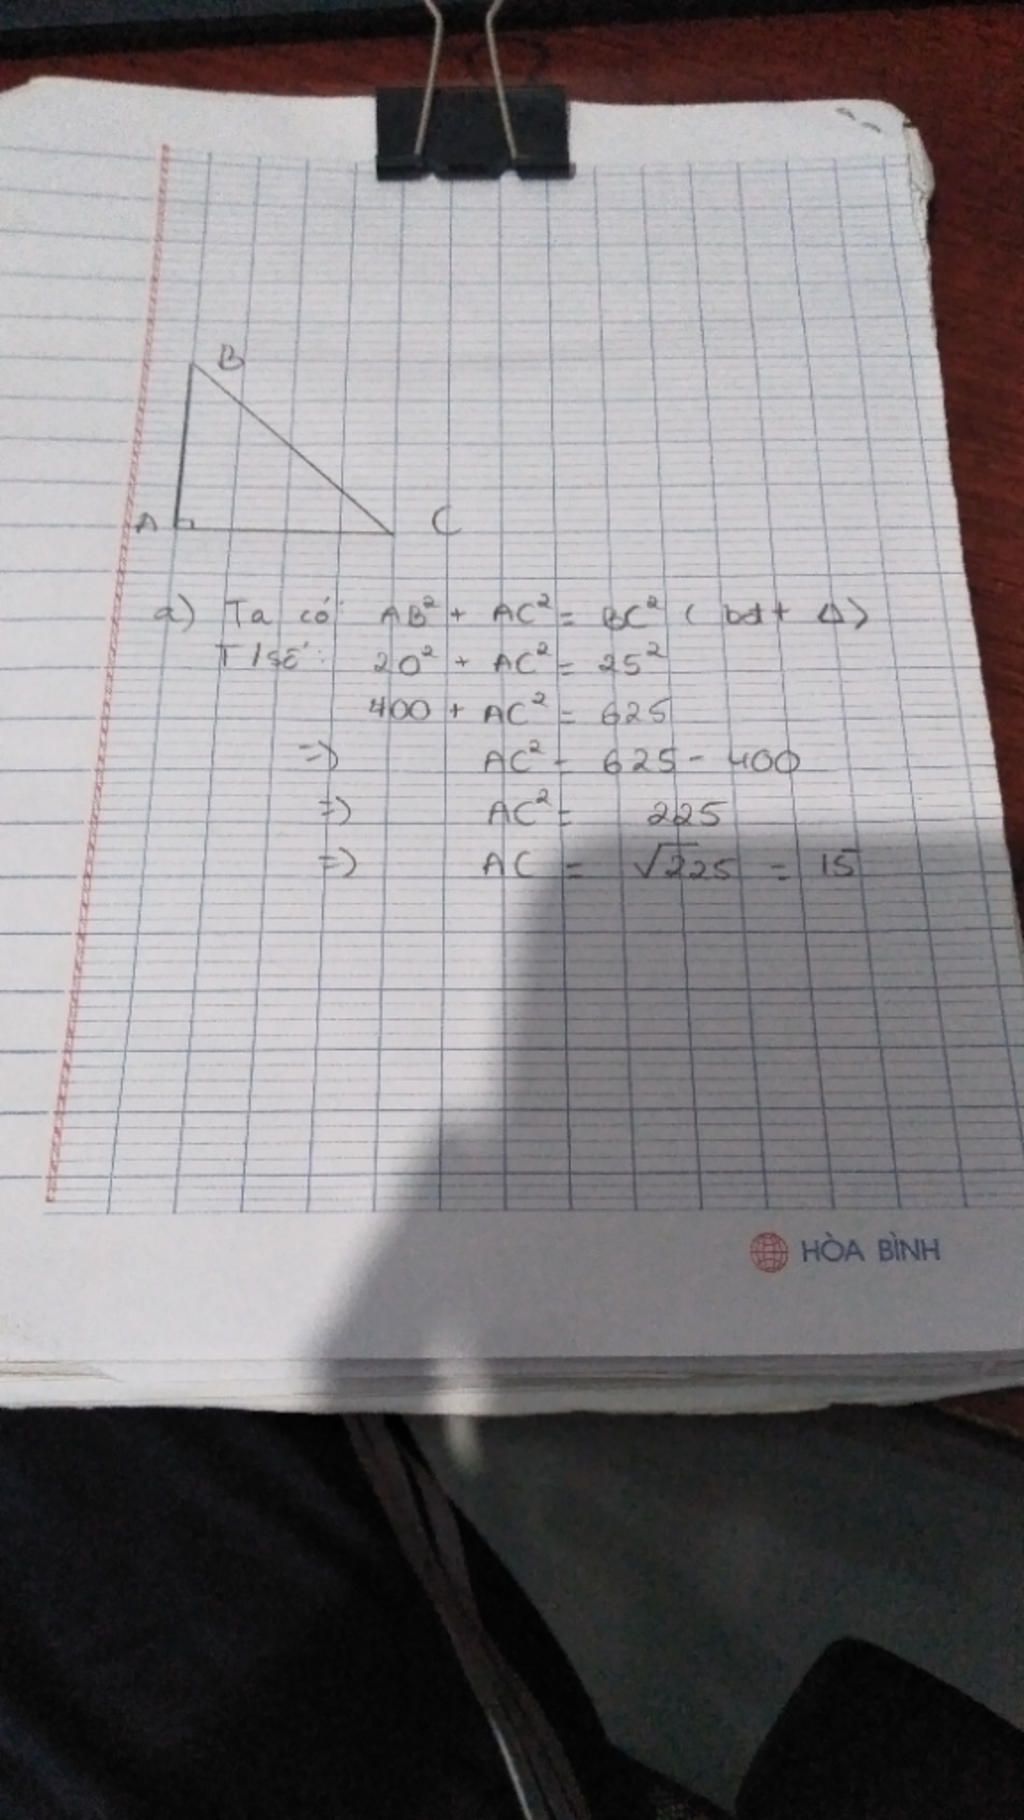 B
A
C
a) Ta có: AB² + AC² = BC² ( bđt Δ)
T/số: 20² + AC² = 25²
400 + AC² = 625
=> AC² = 625 - 400
=> AC² = 225
=> AC = √225 = 15
HÒA BÌNH